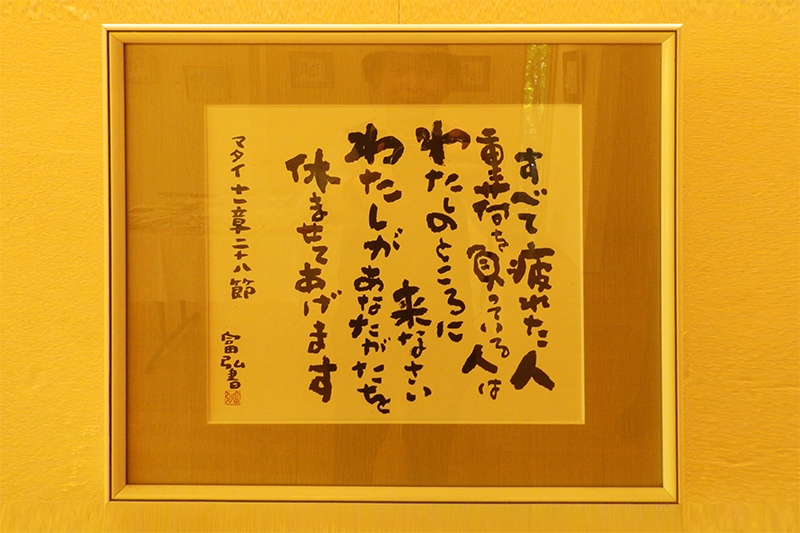 すべて疲れた人
重荷を負っている人は
わたしのところに
来なさい
わたしがあなたがたを
休ませてあげます
マタイ十一章二十八節
富弘書